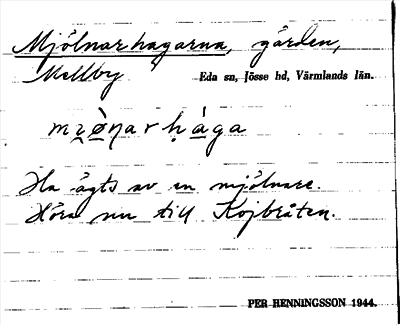 Mjölnarhagarna, gården,
Mellby
Eda sn, Jösse hd, Värmlands län.
mɀø̀ɳar ḥàga
Ha ägts av en mjölnare.
Höra nu till Kojbråten.
PER HENNINGSSON 1944.